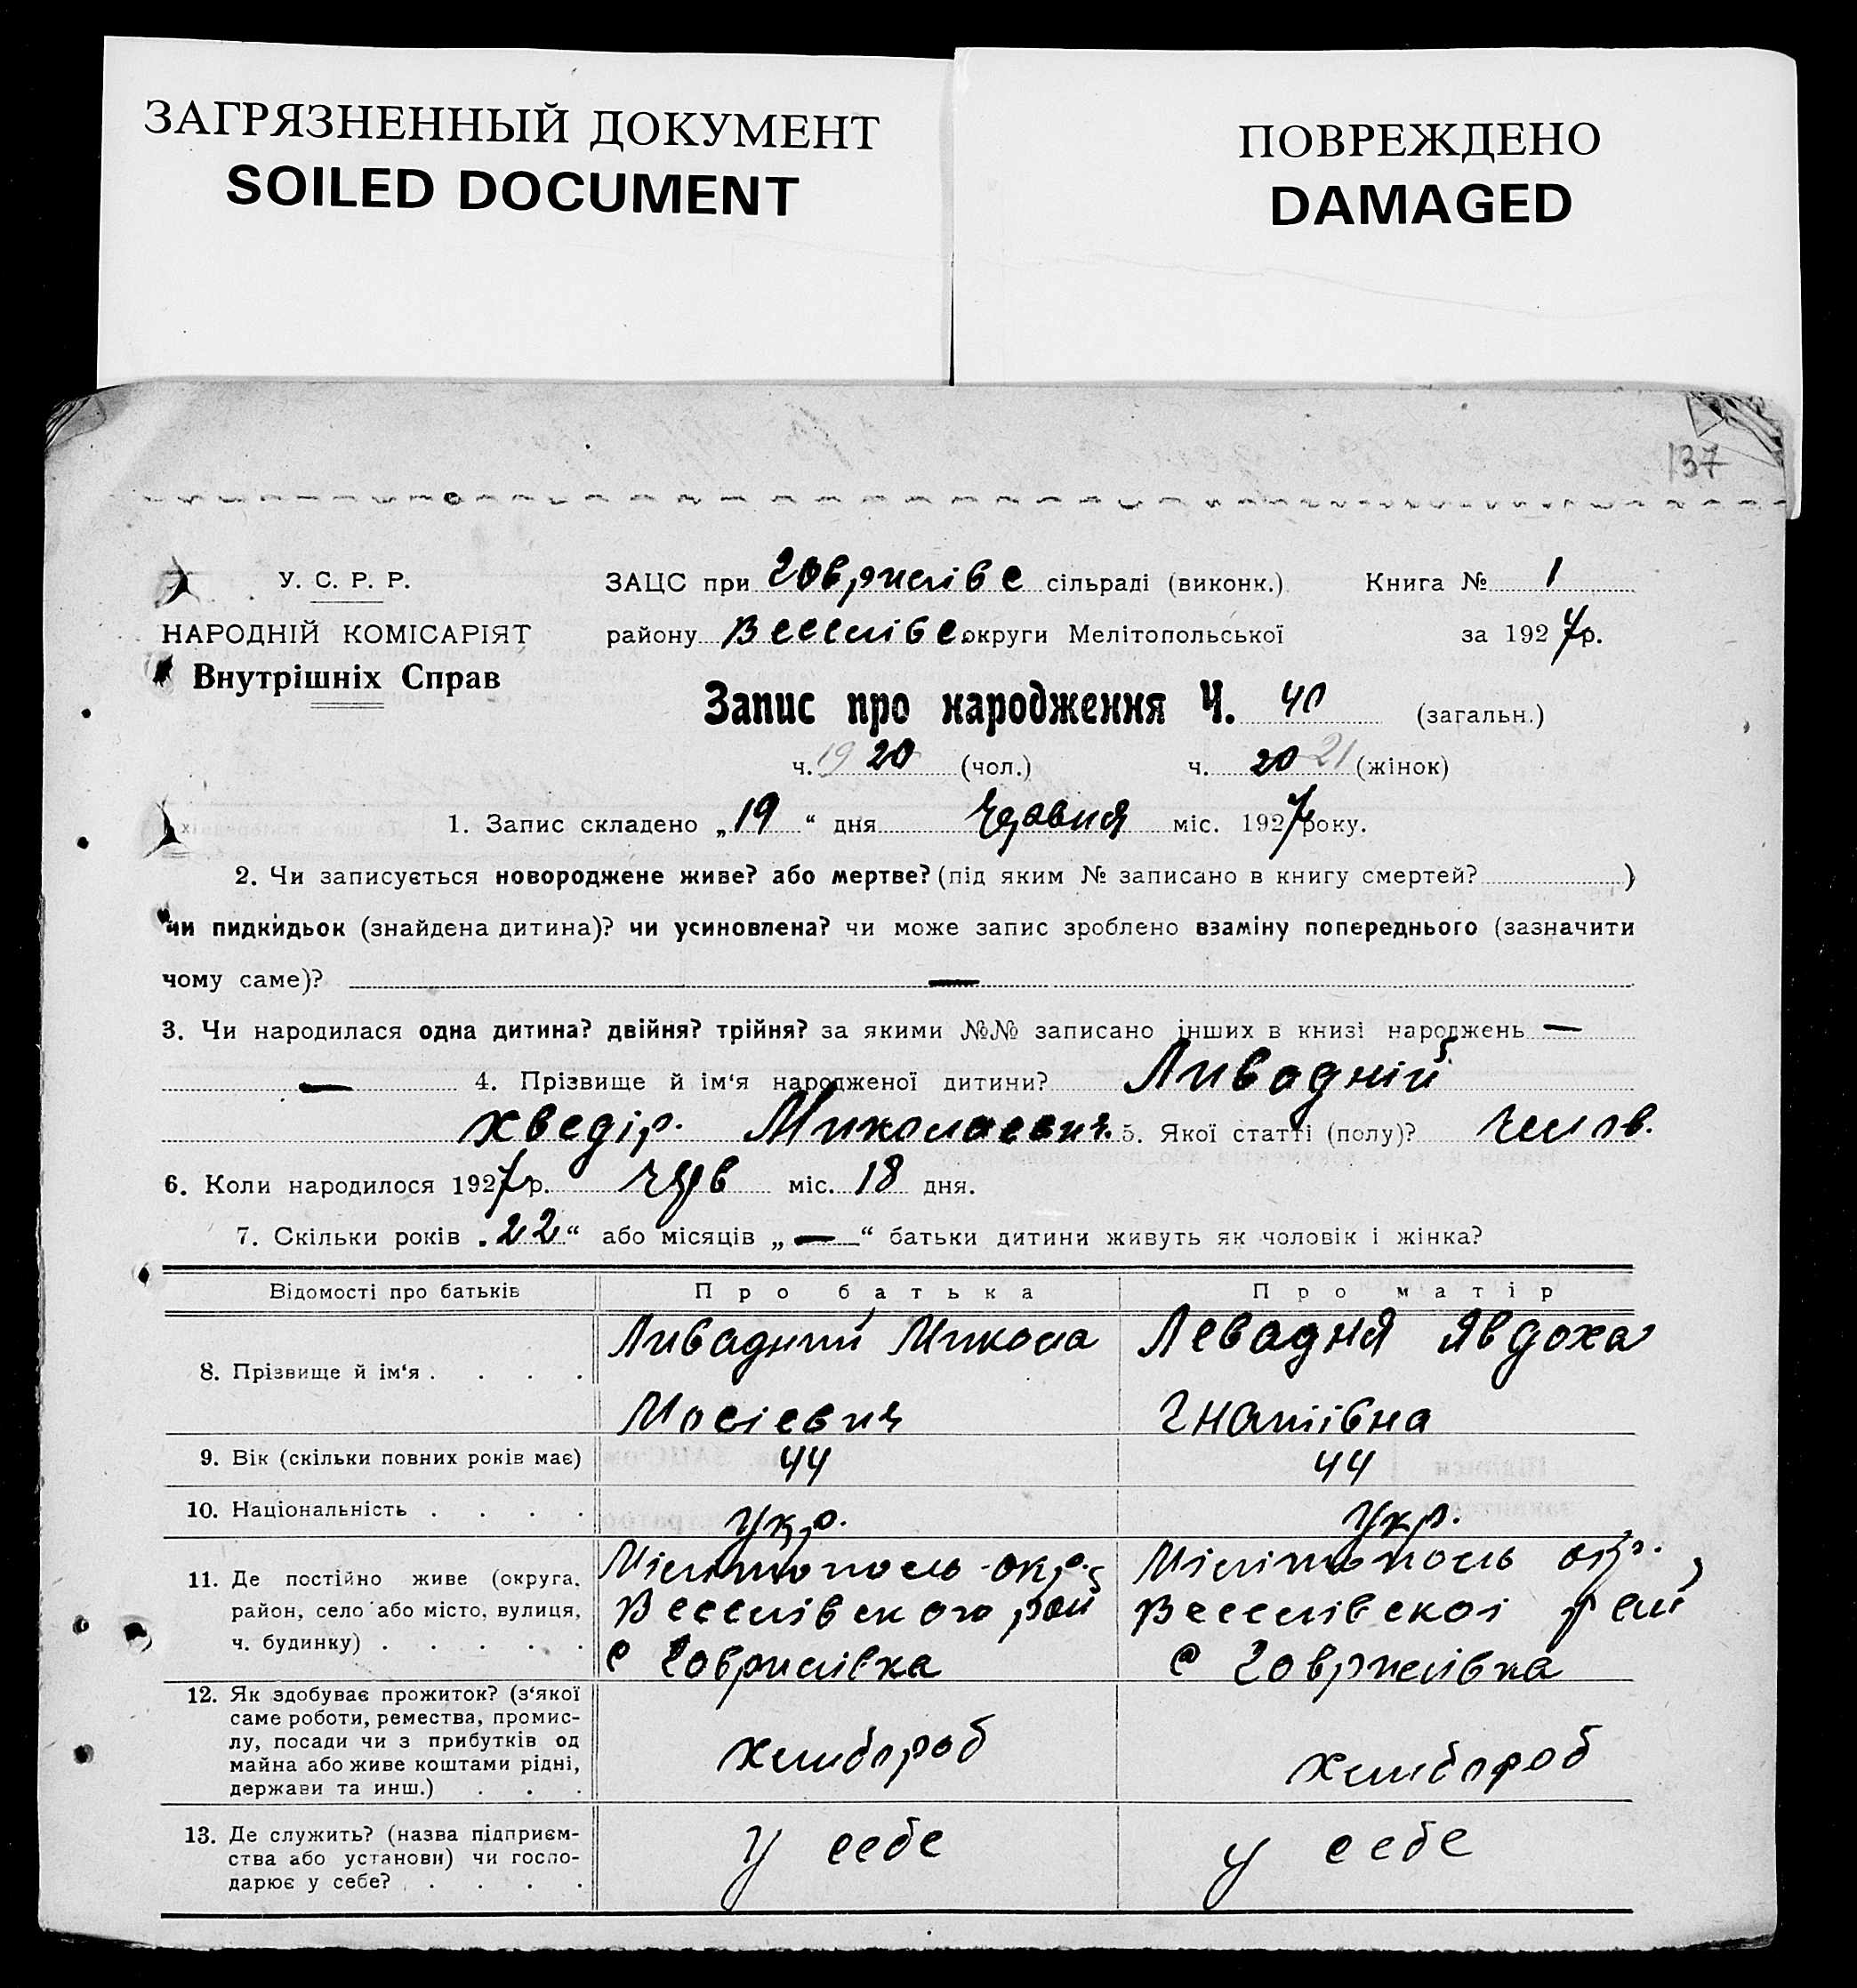 ЗАГРЯЗНЕННЫЙ ДОКУМЕНТ
SOILED DOCUMENT
ПОВРЕЖДЕНО
DAMAGED
137
У. С. Р. Р.
НАРОДНІЙ КОМІСАРІЯТ
Внутрішніх Справ
ЗАЦС при Говрилівс сільраді (виконк.) Книга № 1
району Веселівс округи Мелітопольської за 1927р.
Запис про народження Ч. 40 (загальн.)
ч. 19 20 (чол.) ч. 20 21 (жінок)
1. Запис складено „19“ дня Червня міс. 1927 року.
2. Чи записується новороджене живе? або мертве? (під яким № записано в книгу смертей? )
чи пидкидьок (знайдена дитина)? чи усиновлена? чи може запис зроблено взаміну попереднього (зазначити
чому саме)? —
3. Чи народилася одна дитина? двійня? трійня? за якими №№ записано інших в книзі народжень —
— 4. Прізвище й ім‘я народженої дитини? Ливадній
Хведір. Миколаевич. 5. Якої статті (полу)? Чолов.
6. Коли народилося 1927р. Черв міс. 18 дня.
7. Скільки років „22“ або місяців „—“ батьки дитини живуть як чоловік і жінка?
Відомості про батьків Про батька Про матір
8. Прізвище й ім‘я . . . . Ливадний Микола Мосіевич Левадня Явдоха Гнатівна
9. Вік (скільки повних років має) 44 44
10. Національність . . . . Укр. Укр.
11. Де постійно живе (округа, район, село або місто, вулиця, ч. будинку) . . . . .
Мілітополь окр.
Веселівського рай
с Говрилівка
Мілітополь окр.
Веселівскоі рай
с Говрилівка
12. Як здобуває прожиток? (з‘якої саме роботи, ремества, промислу, посади чи з прибутків од майна або живе коштами рідні, держави та инш.) . . . хлибороб хлибороб
13. Де служить? (назва підприємства або установи) чи господарює у себе? . . . . У себе У себе